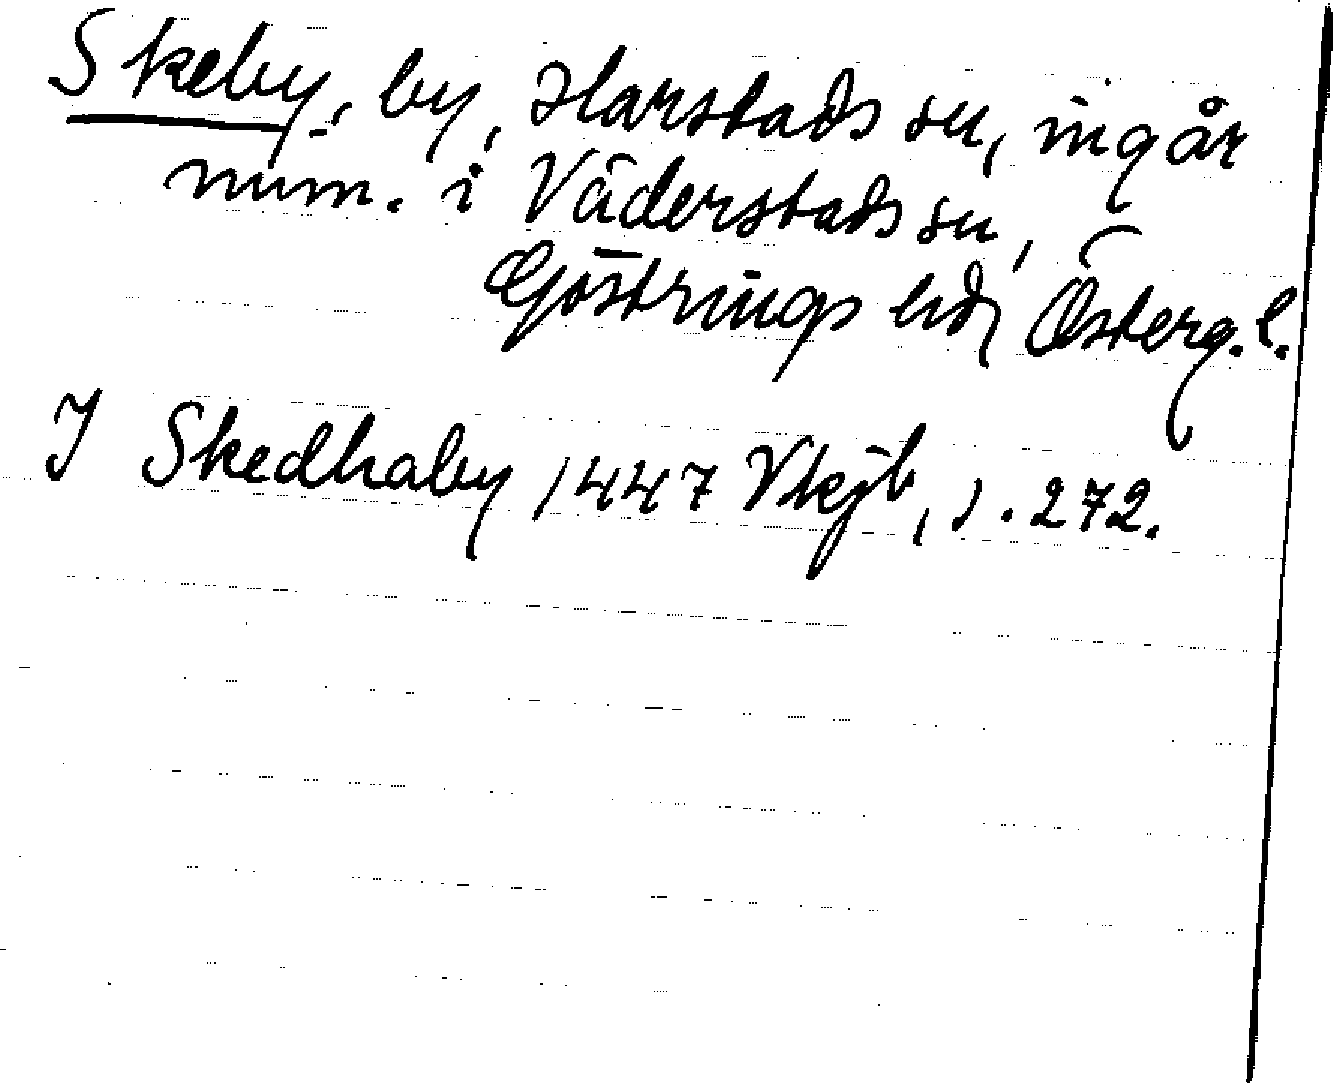 Skeby, by, Harstads sn, ingår
num. i Väderstads sn,
Göstrings hd, Österg. l.
I Skedhaby 1447 Vkjb, s. 272.